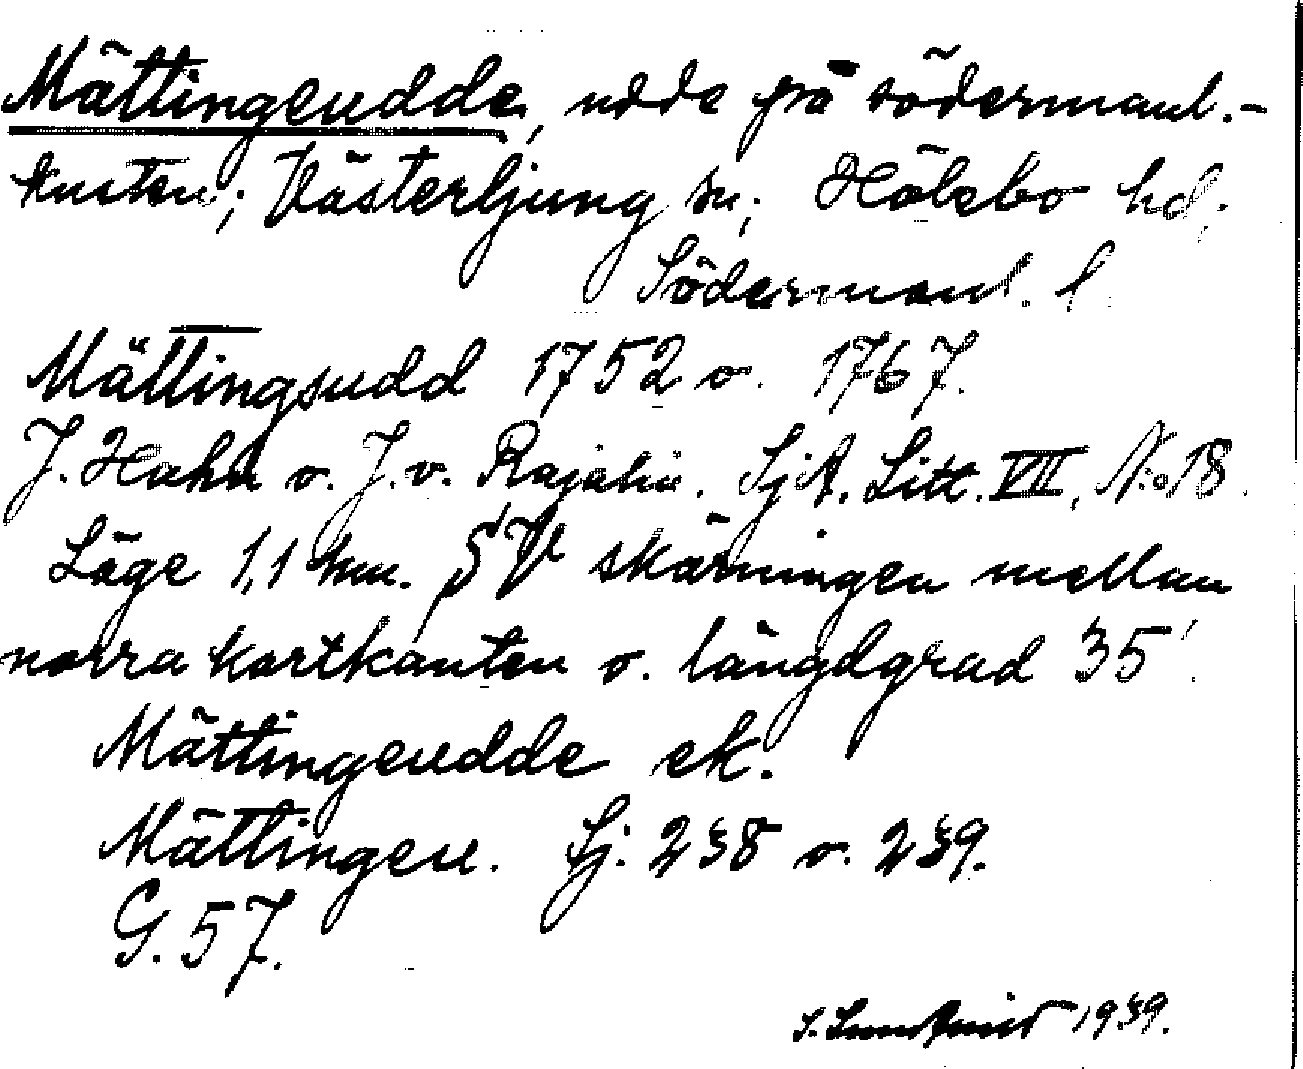 Mättingeudde, udde på södermanl.-
kusten; Västerljung sn; Hölebo hd;
Södermanl. l.
Mättingsudd 1752 o. 1767.
J. Hahn o. J. v. Rajalin. SjA. Litt. VII, N:o 18.
Läge 1,1 km. SV skärningen mellan
norra kartkanten o. längdgrad 35'.
Mättingeudde ek.
Mättingen. Sj. 238 o. 239.
G. 57.
1939.